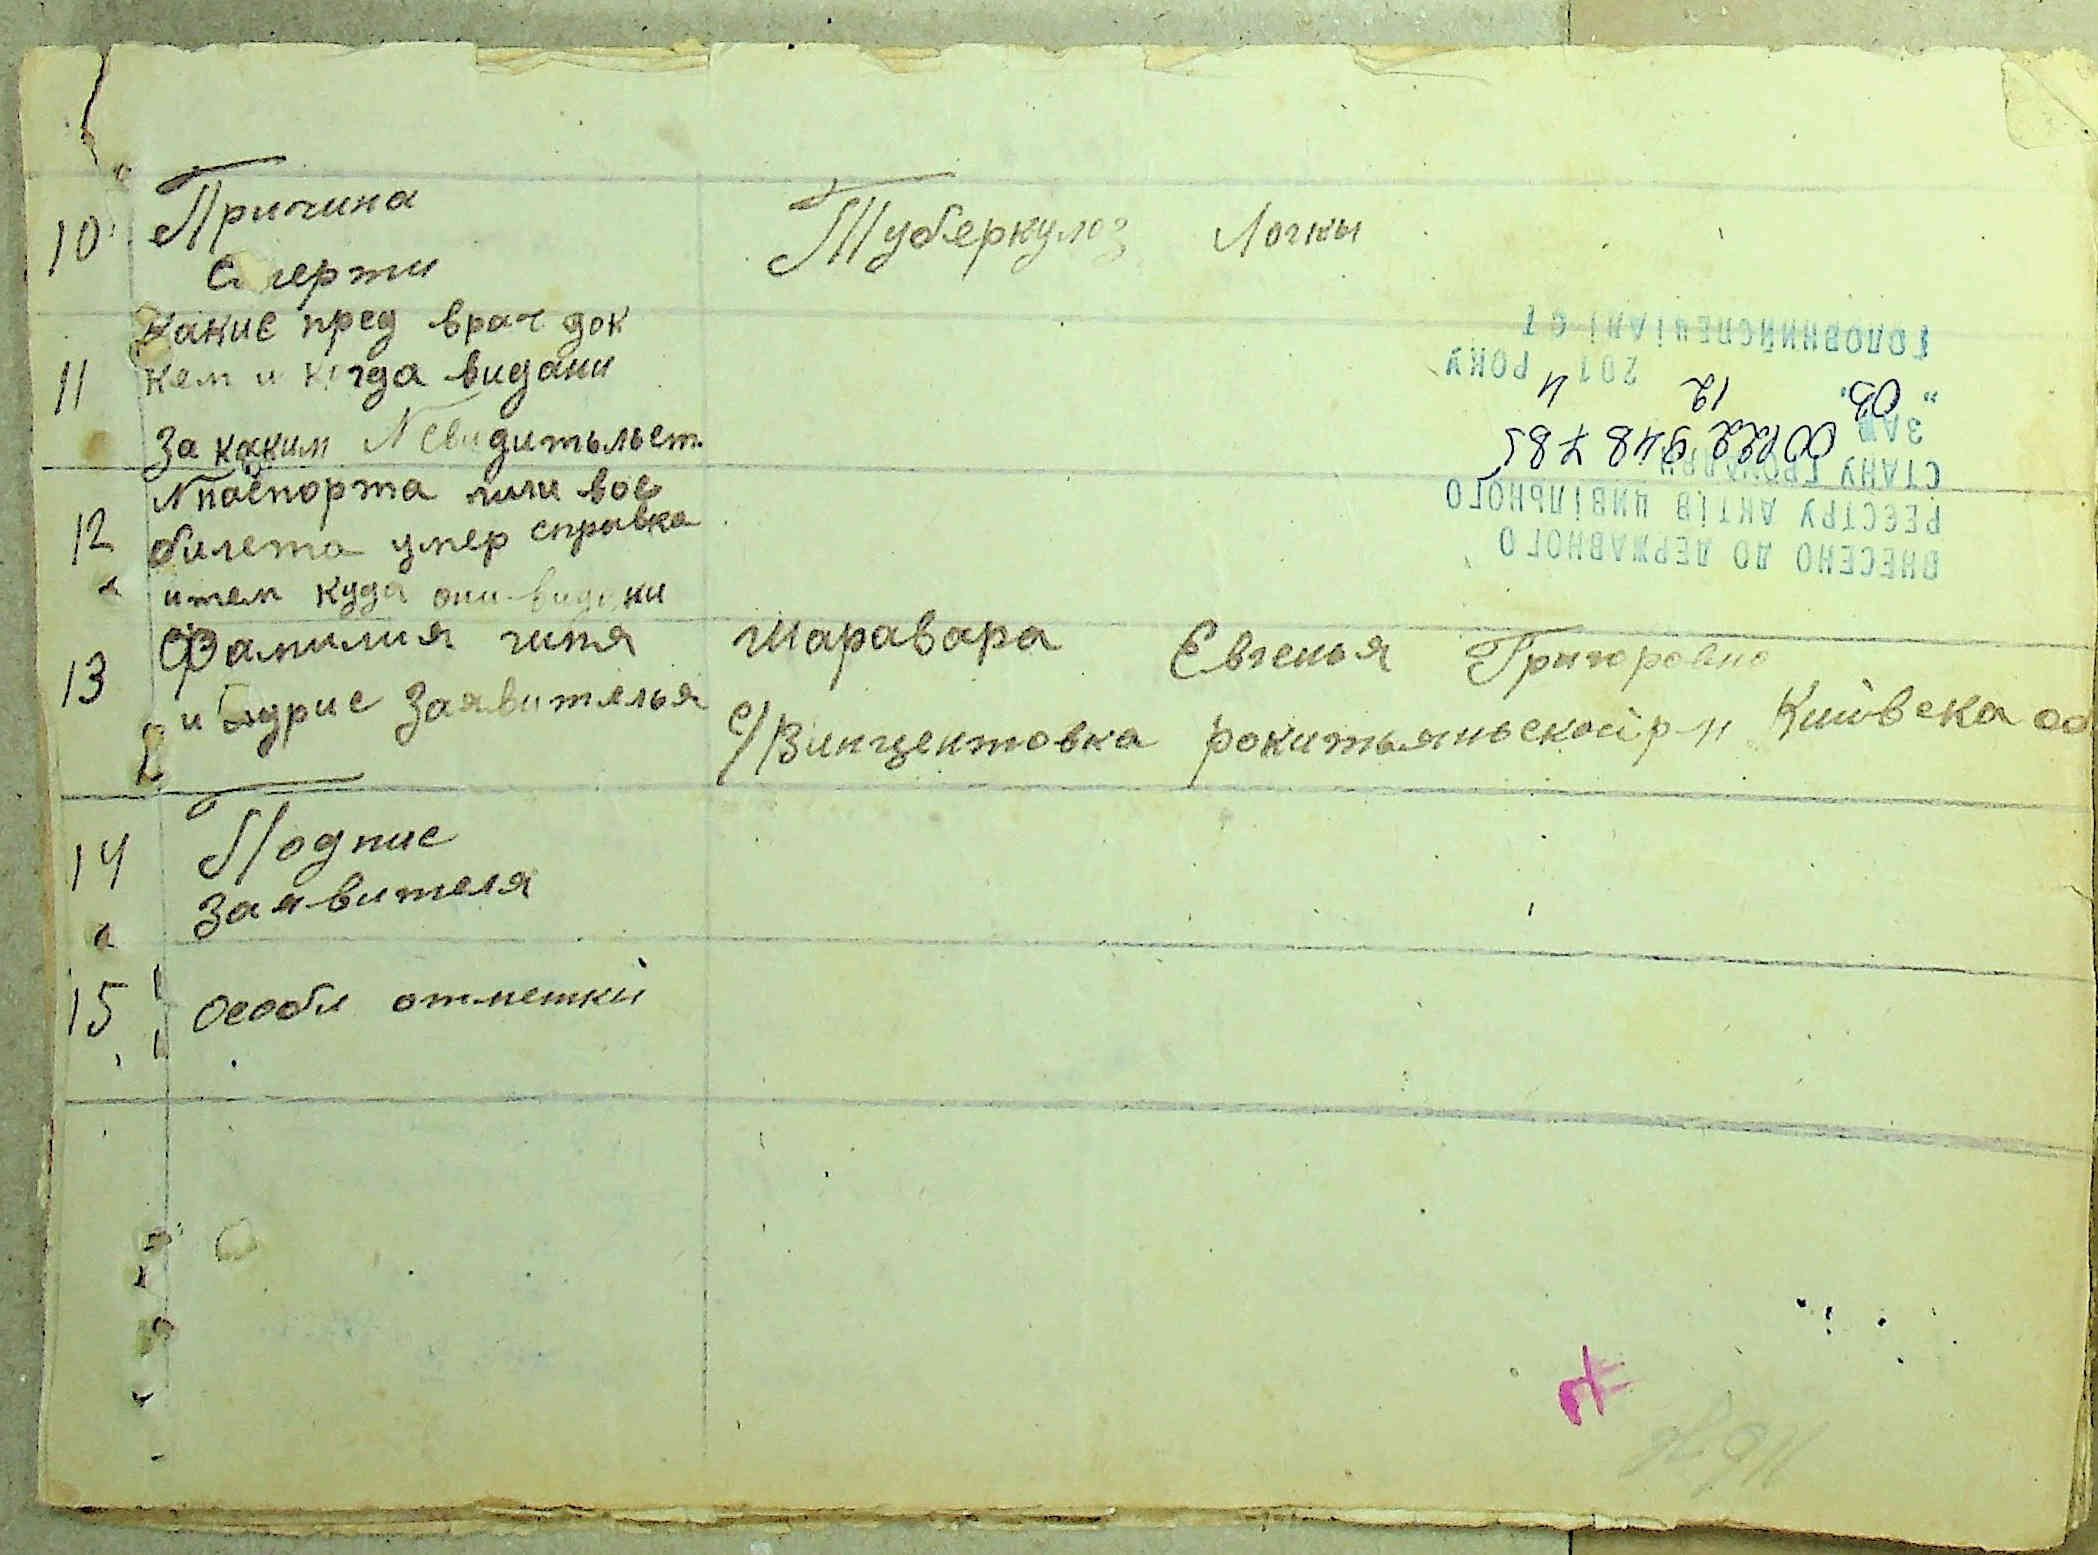 10 Причина Туберкулоз Логкы
Смерти
какие пред врач док
11 кем и когда видани
За каким N Свидитьльст
N паспорта или вое
12 билета умер справка
куда они видани
Фамилия имя Шаравара Євгенья Григоровно
13 и Заявитялья с/Винцентовка рокитьяньской р-н Київска об
14 Подпис
Заявителя
15 особл отметки
ВНЕСЕНО ДО ДЕРЖАВНОГО
РЕЄСТРУ АКТІВ ЦИВІЛЬНОГО
СТАНУ ГРОМАДЯН
ЗА№ 00122948785
"03" 12 2014 РОКУ
ГОЛОВНИЙ СПЕЦІАЛІСТ